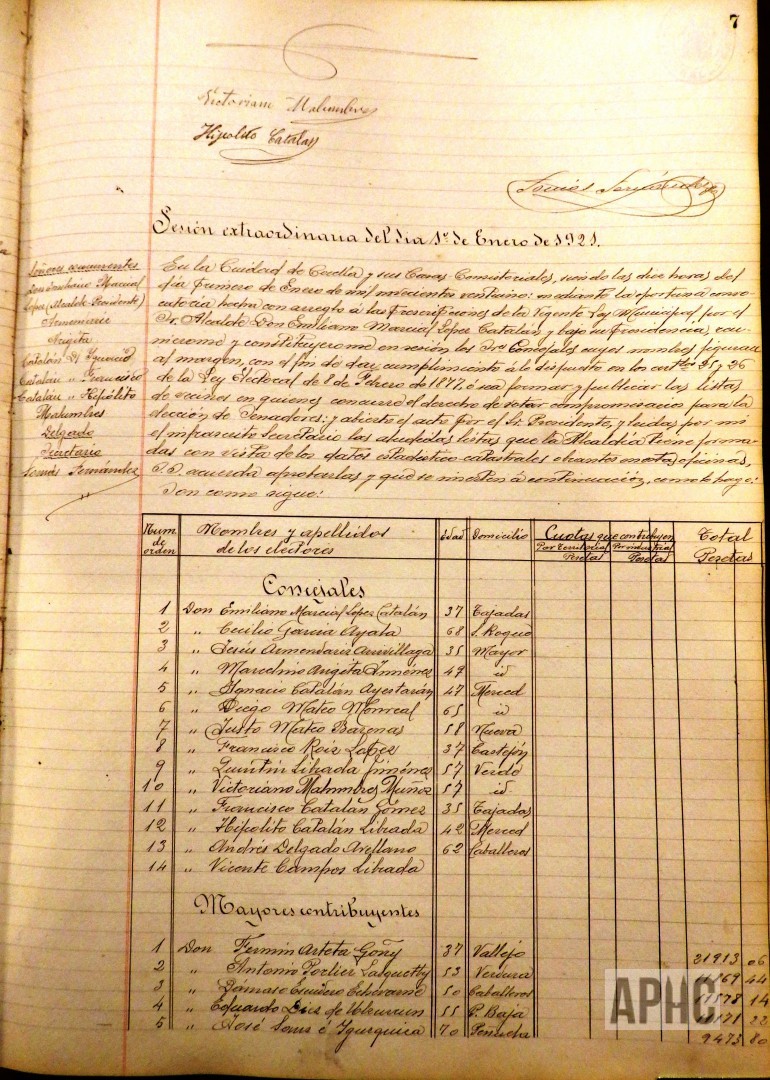 7
Victoriano Malumbres
Hipolito Catalan
Tomás Fernández
Sesión extraordinaria del dia 1º de Enero de 1921.
Señores concurrentes
Don Emiliano Marcial
Lopez (Alcalde Presidente)
Armendariz
Angita
Catalán D. Ignacio
Catalan " Francisco
Catalan " Hipólito
Malumbres
Delgado
Secretario
Tomás Fernández
En la Ciudad de Corella y sus Casas Consistoriales, siendo las diez horas del
día primero de Enero de mil novecientos veintiuno: mediante la oportuna convo-
catoria hecha con arreglo á las prescripciones de la vigente Ley Municipal, por el
Sr. Alcalde Don Emiliano Marcial Lopez Catalán y bajo su Presidencia, reu-
nieronse y constituyeronse en sesión los Sres Concejales cuyos nombres figuran
al margen, con el fin de dar cumplimiento á lo dispuesto en los artºs 25 y 26
de la Ley Electoral de 8 de Febrero de 1877, ó sea formar y publicar las listas
de vecinos en quienes concurre el derecho de votar compromisarios para la
elección de Senadores: y abierto el acto por el Sr. Presidente, y leidas por mi
el infrascrito Secretario las aludidas listas que la Alcaldía tiene forma-
das con vista de los datos estadistico-catastrales obrantes en estas oficinas,
S.S. acuerda aprobarlas y que se inserten á continuación, como lo hago:
Son como sigue:
Num. de orden
Nombres y apellidos de los electores
Edad
Domicilio
Cuotas que contribuyen
Por territorial Pesetas
Por industrial Pesetas
Total Pesetas
Concejales
1 Don Emiliano Marcial Lopez Catalán 37 Tajadas
2 " Cecilio Garcia Ayala 68 S. Roque
3 " Jesús Armendariz Arrivillaga 35 Mayor
4 " Marcelino Angita Jimenez 49 id
5 " Ignacio Catalán Ayestarán 47 Merced
6 " Diego Mateo Monreal 65 id
7 " Justo Mateo Barenas 58 Nueva
8 " Francisco Roiz Lopez 37 Castejón
9 " Quintin Librada Jiménez 57 Verde
10 " Victoriano Malumbres Muñoz 57 id
11 " Francisco Catalán Gómez 35 Tajadas
12 " Hipólito Catalán Librada 42 Merced
13 " Andrés Delgado Arellano 62 Caballeros
14 " Vicente Campos Librada
Mayores contribuyentes
1 Don Fermin Arteta Goñy 37 Vallejo 21913 06
2 " Antonio Porlier Lasquetty 53 Verdura 44
3 " Damaso Escudero Echevarria 50 Caballeros 14
4 " Eduardo Diez de Ulzurrun 55 P. Baja 22
5 " José Sanz é Ygurquiza 70 9473 80
APHC